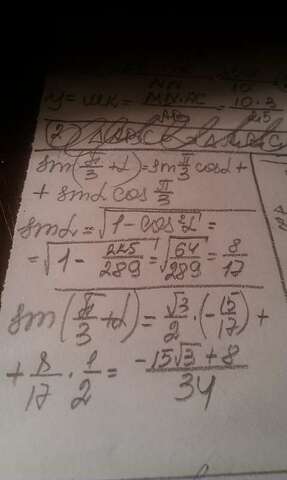 y = MK = MN·AC / AB = 10·3 /
sin(π/3 + α) = sin π/3 cos α +
+ sin α cos π/3
sin α = √(1 - cos²α) =
= √(1 - 225/289) = √(64/289) = 8/17
sin(π/3 + α) = √3/2 · (-15/17) +
+ 8/17 · 1/2 = (-15√3 + 8)/34